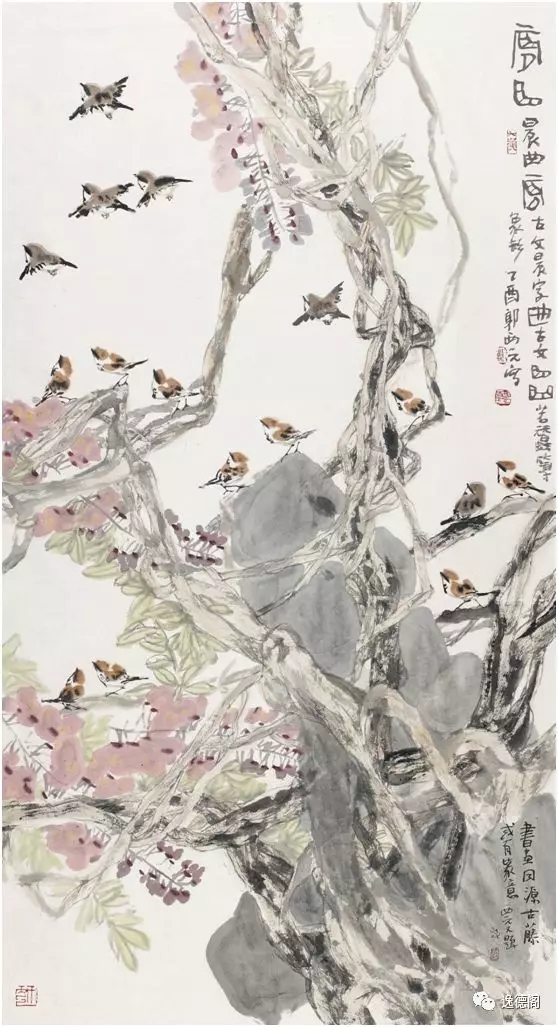 晨曲
古文晨字曲古文
若蠶薄
象形 丁酉郭西元寫
書画同源古藤
或有篆意 西元又題
逸德阁